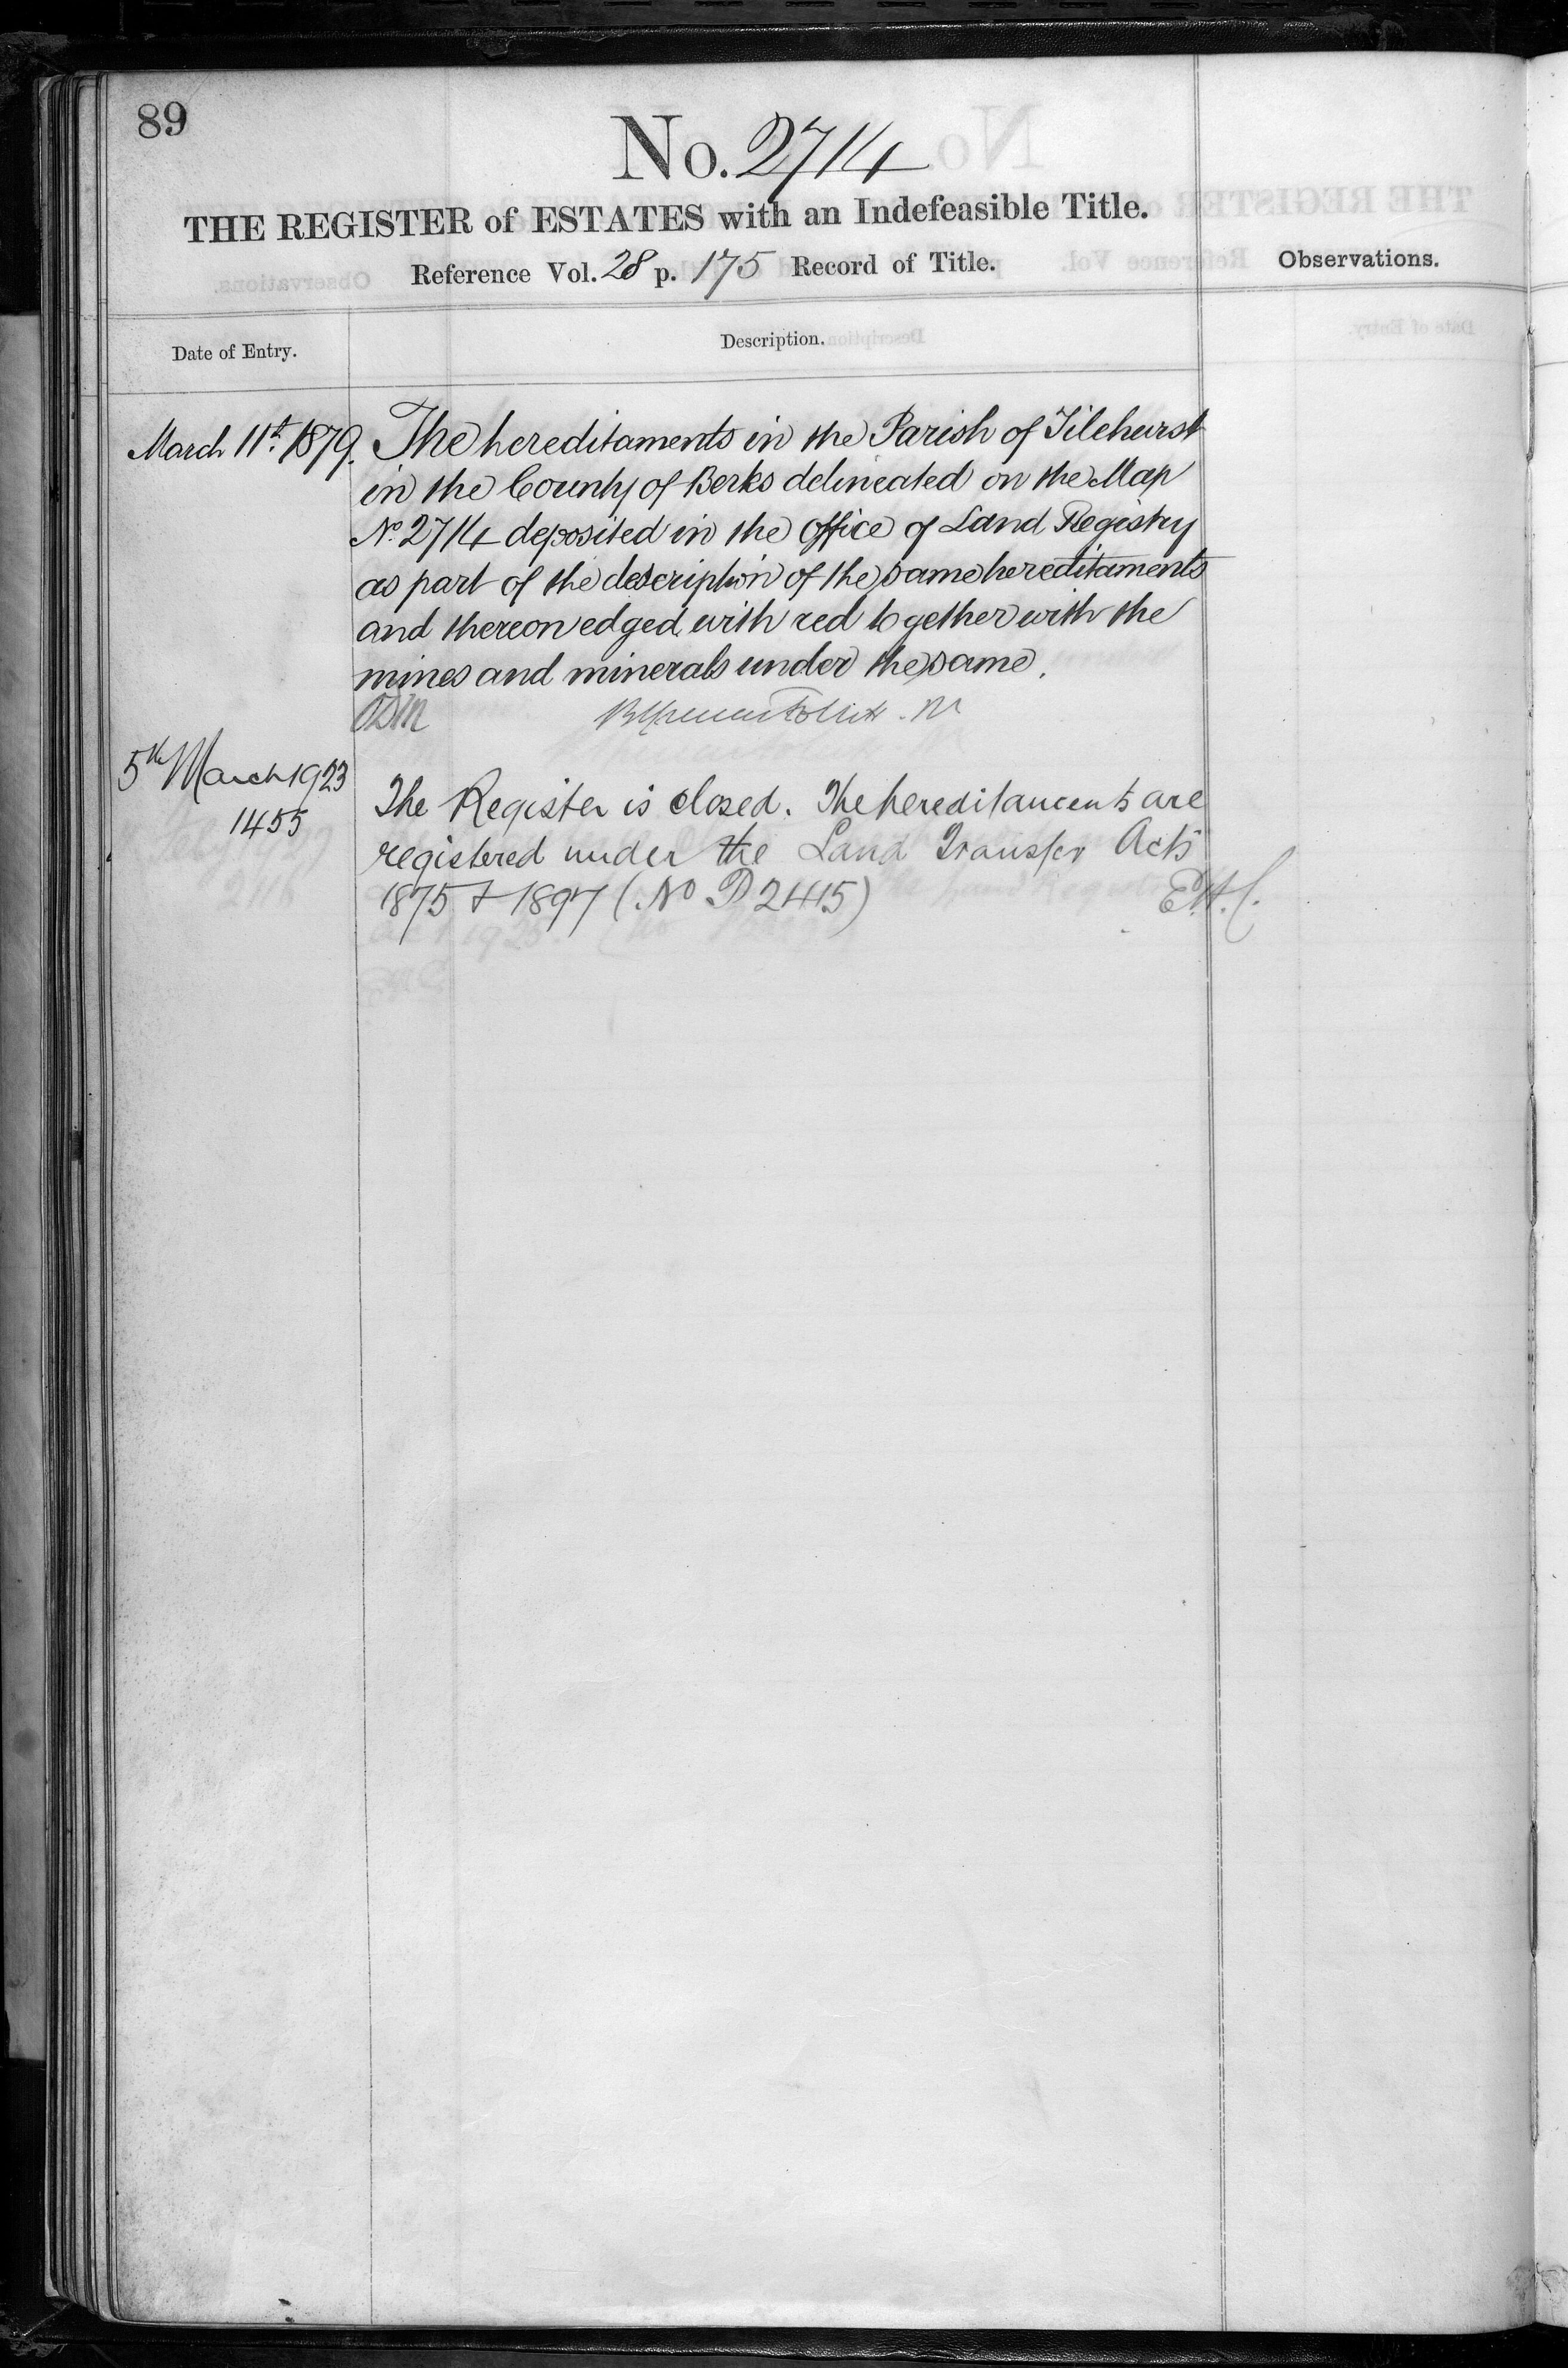 89
No. 2714
THE REGISTER of ESTATES with an Indefeasible Title.
Reference Vol. 28 p. 175 Record of Title.
Observations.
Date of Entry.
Description.
March 11th 1879.
The hereditaments in the Parish of Tilehurst
in the County of Berks delineated on the Map
No. 2714 deposited in the Office of Land Registry
as part of the description of the same hereditaments
and thereon edged with red together with the
mines and minerals under the same.
5th March 1923
1455
The Register is closed. The hereditaments are
registered under the Land Transfer Acts
1875 & 1897 (No P 2415)